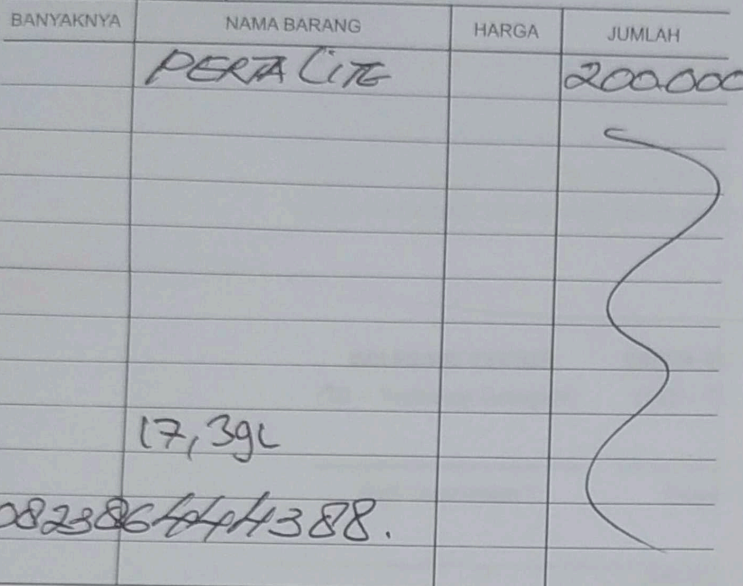 BANYAKNYA NAMA BARANG HARGA JUMLAH
PERTA LITE 200.000
17,39L
082386444388.